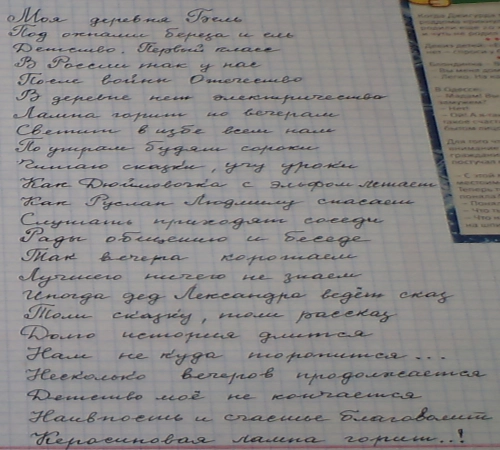 Моя деревня Гзель
Под окнами береза и ель
Детство. Первый класс
В России так у нас
После войны Отечество
В деревне нет электричества
Лампа горит по вечерам
Светит в избе всем нам
По утрам будят сороки
Читаю сказки, учу уроки
Как Дюймовочка с эльфом летает
Как Руслан Людмилу спасает
Слушать приходят соседи
Рады общению и беседе
Так вечера коротаем
Лучшего ничего не знаем
Иногда дед Лександра ведёт сказ
То ли сказку, то ли рассказ
Долго история длится
Нам не куда торопится...
Несколько вечеров продолжается
Детство моё не кончается
Наивность и счастье благоволит
Керосиновая лампа горит..!
Когда
В Одессе: